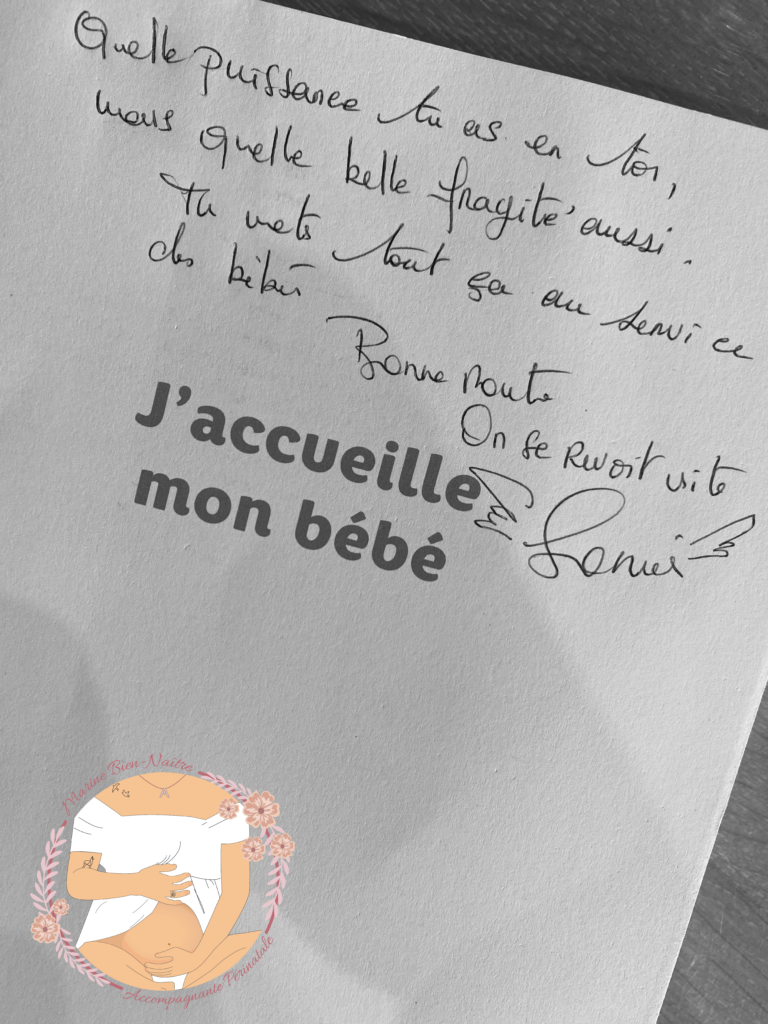 Quelle puissance tu as en toi,
mais quelle belle fragité aussi.
Tu mets tout ça au service
des bébés
Bonne route
On se revoit vite
J'accueille
mon bébé
Marine Bien-Naître
Accompagnante Périnatale